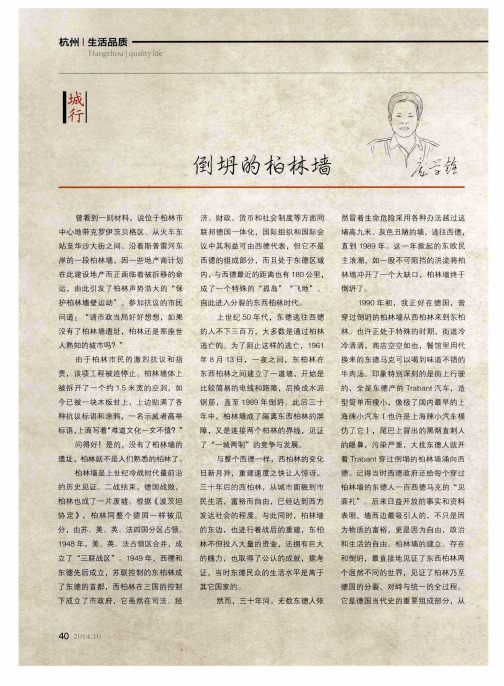 杭州 | 生活品质
Hangzhou | quality life
城
行
倒坍的柏林墙
曾看到一则材料，说位于柏林市
中心地带克罗伊茨贝格区、从火车东
站至华沙大街之间、沿着斯普雷河东
岸的一段柏林墙，因一些地产商计划
在此建设地产而正面临着被拆移的命
运，由此引发了柏林声势浩大的“保
护柏林墙壁运动”。参加抗议的市民
问道：“请市政当局好好想想，如果
没有了柏林墙遗址，柏林还是那座世
人熟知的城市吗？”
由于柏林市民的激烈抗议和指
责，该项工程被迫停止。柏林墙体上
被拆开了一个约1.5米宽的空洞，如
今已被一块木板封上，上边贴满了各
种抗议标语和涂鸦，一名示威者高举
标语，上面写着“难道文化一文不值？”
问得好！是的，没有了柏林墙的
遗址，柏林就不是人们熟悉的柏林了。
柏林墙是上世纪冷战时代最前沿
的历史见证。二战结束，德国战败，
柏林也成了一片废墟。根据《波茨坦
协定》，柏林同整个德国一样被瓜
分，由苏、美、英、法四国分区占领。
1948年，美、英、法占领区合并，成
立了“三联战区”。1949年，西德和
东德先后成立，苏联控制的东柏林成
了东德的首都，西柏林在三国的控制
下成立了市政府，它虽然在司法、经
济、财政、货币和社会制度等方面同
联邦德国一体化，国际组织和国际会
议中其利益可由西德代表，但它不是
西德的组成部分，而且处于东德区域
内，与西德最近的距离也有180公里，
成了一个特殊的“孤岛”“飞地”。
自此进入分裂的东西柏林时代。
上世纪50年代，东德逃往西德
的人不下三百万，大多数是通过柏林
逃亡的。为了阻止这样的逃亡，1961
年8月13日，一夜之间，东柏林在
东西柏林之间建立了一道墙，开始是
比较简易的电线和路障，后换成水泥
钢筋，直至1989年倒坍。此后三十
年中，柏林墙成了隔离东西柏林的屏
障，又是连接两个柏林的界线，见证
了“一城两制”的竞争与发展。
与整个西德一样，西柏林的变化
日新月异，重建速度之快让人惊讶。
三十年后的西柏林，从城市面貌到市
民生活，富裕而自由，已经达到西方
发达社会的程度。与此同时，柏林墙
的东边，也进行着战后的重建，东柏
林不但投入大量的资金，还拥有巨大
的魄力，也取得了公认的成就，据考
证，当时东德民众的生活水平是高于
其它国家的。
然而，三十年间，无数东德人依
然冒着生命危险采用各种办法越过这
堵高九米、灰色丑陋的墙，逃往西德，
直到1989年。这一年掀起的东欧民
主浪潮，如一股不可阻挡的洪流将柏
林墙冲开了一个大缺口，柏林墙终于
倒坍了。
1990年初，我正好在德国，曾
穿过倒坍的柏林墙从西柏林来到东柏
林。也许正处于特殊的时期，街道冷
冷清清，商店空空如也，餐馆里用代
换来的东德马克可以喝到味道不错的
牛肉汤。印象特别深刻的是街上行驶
的，全是东德产的Trabant汽车，造
型简单而瘦小，像极了国内最早的上
海牌小汽车（也许是上海牌小汽车模
仿了它），尾巴上冒出的黑烟直刺人
的眼鼻，污染严重，大批东德人就开
着Trabant穿过倒塌的柏林墙涌向西
德。记得当时西德政府还给每个穿过
柏林墙的东德人一百西德马克的“见
面礼”。后来日益开放的事实和资料
表明，墙西边最吸引人的，不只是因
为物质的富裕，更是因为自由，政治
和生活的自由。柏林墙的建立、存在
和倒坍，最直接地见证了东西柏林两
个迥然不同的世界，见证了柏林乃至
德国的分裂、对峙与统一的全过程。
它是德国当代史的重要组成部分，从
40 2014.10